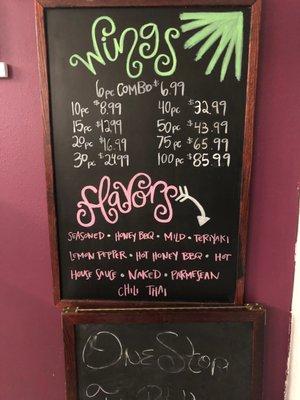 Wings
6pc COMBO $6.99
10pc $8.99 40pc $32.99
15pc $12.99 50pc $43.99
20pc $16.99 75pc $65.99
30pc $24.99 100pc $85.99
Flavors
SEASONED • HONEY BBQ • MILD • TERIYAKI
LEMON PEPPER • HOT HONEY BBQ • HOT
HOUSE SAUCE • NAKED • PARMESEAN
CHILI THAI
One Stop